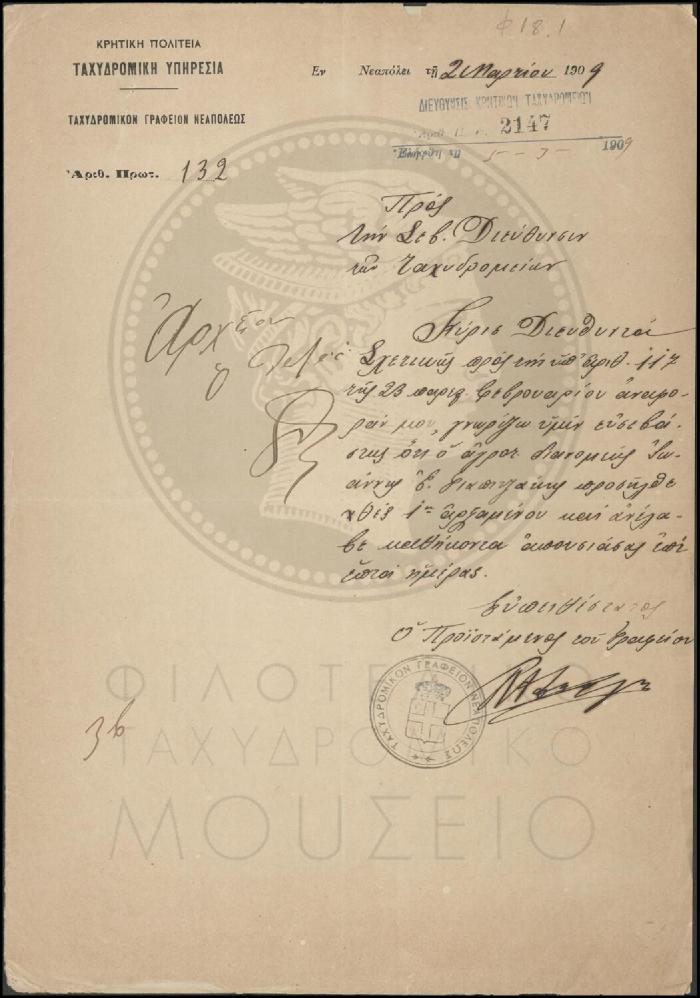 Φ 18.1
ΚΡΗΤΙΚΗ ΠΟΛΙΤΕΙΑ
ΤΑΧΥΔΡΟΜΙΚΗ ΥΠΗΡΕΣΙΑ
ΤΑΧΥΔΡΟΜΙΚΟΝ ΓΡΑΦΕΙΟΝ ΝΕΑΠΟΛΕΩΣ
Ἀριθ. Πρωτ. 132
Ἐν Νεαπόλει τῇ 2 Μαρτίου 1909
ΔΙΕΥΘΥΝΣΙΣ ΚΡΗΤΙΚΩΝ ΤΑΧΥΔΡΟΜΕΙΩΝ
Ἀριθ. Π. 2147
5 - 3 - 1909
Πρὸς
τὴν Σεβ. Διεύθυνσιν
τῶν Ταχυδρομείων
Ἀρχεῖον
Κύριε Διευθυντά
Σχετικῶς πρὸς τὴν ὑπ' ἀριθ. 117
τῆς 23 παρελ. Φεβρουαρίου ἀναφο-
ράν μου, γνωρίζω ὑμῖν εὐσεβά-
στως ὅτι ὁ ἀγροτ. διανομεὺς Ἰω-
άννης προσῆλθε
χθὲς 1ην ἀρξαμένου καὶ ἀνέλα-
βε καθήκοντα ἀπουσιάσας ἐπὶ
ἑπτὰ ἡμέρας.
Εὐπειθέστατος
Ὁ Προϊστάμενος τοῦ Γραφείου
ΤΑΧΥΔΡΟΜΙΚΟΝ ΓΡΑΦΕΙΟΝ ΝΕΑΠΟΛΕΩΣ
3β
ΦΙΛΟΤΕΛΙΚΟ
ΤΑΧΥΔΡΟΜΙΚΟ
ΜΟΥΣΕΙΟ